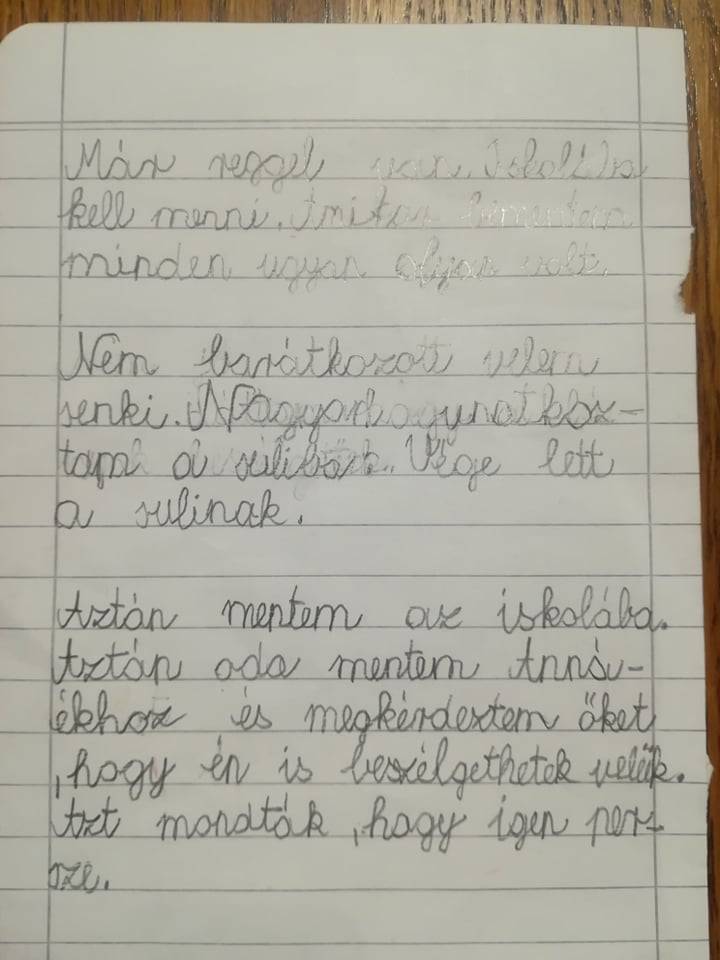 Már reggel van. Iskolába
kell menni. Amikor bementem
minden ugyan olyan volt.
Nem barátkozott velem
senki. Nagyon unatkoz-
tam a suliban. Vége lett
a sulinak.
Aztán mentem az iskolába.
Aztán oda mentem Annáv-
ékhoz és megkérdeztem őket
,hogy én is beszélgethetek velük.
Azt mondták ,hogy igen per-
sze.